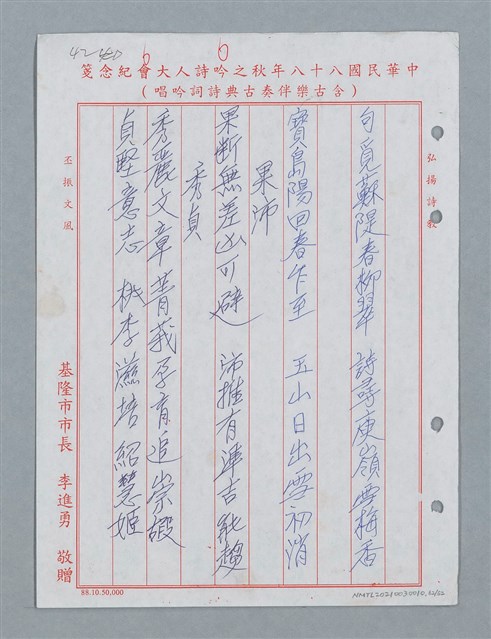 42-460
6
6
中華民國八十八年秋之吟詩人大會紀念箋
（含古樂伴奏古典詩詞吟唱）
弘揚詩教
句覓蘇隄春柳翠　詩尋庾嶺雪梅香
寶島陽回春乍至　玉山日出雪初消
果沛
果斷無差凶可避　沛推有準吉能趨
秀貞
秀麗文章菁莪孕育追崇嘏
貞堅意志　桃李滋培紹慧姬
丕振文風
基隆市市長　李進勇　敬贈
88.10.50,000
NMTL20210030010, 52/52